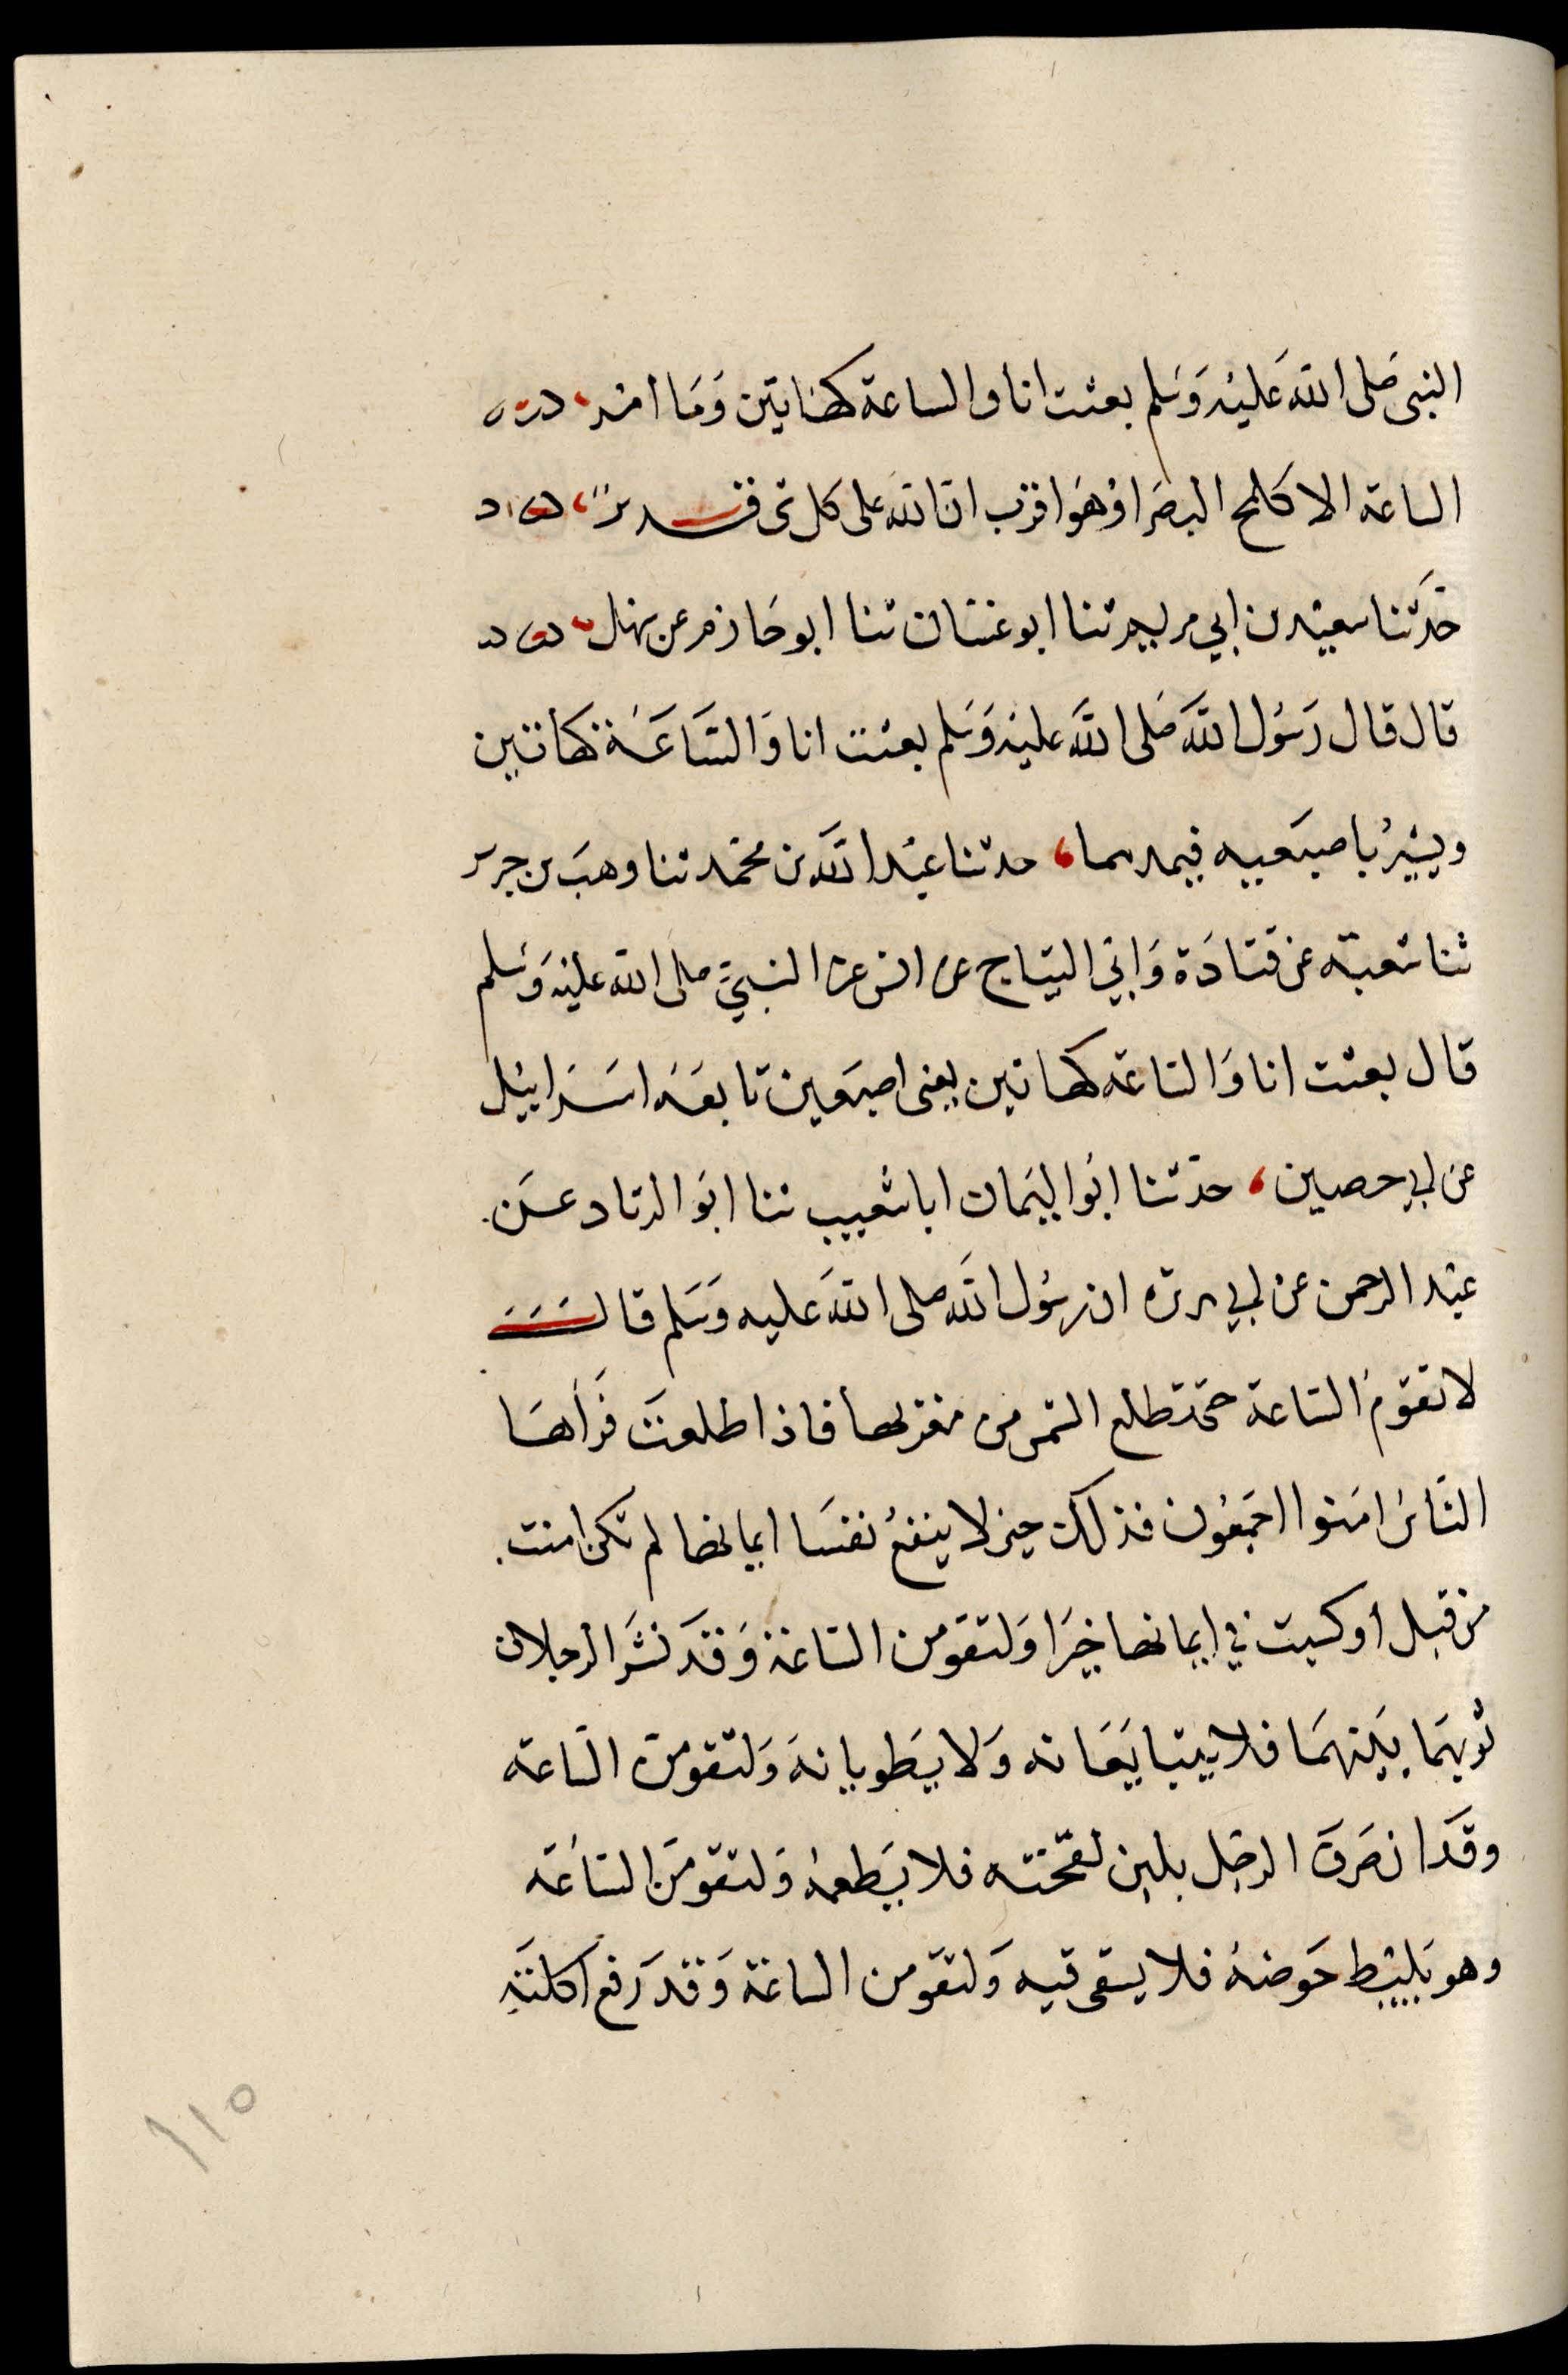 النبى صَلى الله عَليْه وَسَلم بعثت انا والساعة كهَاتين وَمَا امر
الساعة الا كلمح البصَر اوْ هوَ اقرب ان الله على كل شى قدير
حَدّثنا سعيْد بن ابي مريم ثنا ابو غسّان ثنا ابو حَازم عن سهل
قال قال رَسُول الله صَلى الله عليْه وَسَلم بعثت انا وَالسَّاعَة كهَاتين
ويشيْرُ باصبَعيه فيمدهما، حدثنا عبْد الله بن محمّد ثنا وهبَ بن جرير
ثنا شعبَة عن قتادَة وَابي التيَاح عن انس عن النبيّ صلى الله عليْه وَسَلم
قال بعثت انا وَالسّاعة كهاتين يعنى اصبعَين تابعَه اسَرَائيْل
عن ابي حصين، حدّثنا ابُو اليَمان ابا شعيب ثنا ابوَ الزناد عَن
عبْد الرحمن عن ابي هريرة ان رسُول الله صلى الله عَليه وَسَلم قال
لا تقومُ السّاعة حتى تطلع الشمس من مغربها فاذا طلعتَ فرَاهَا
النّاسُ امَنوا اجمَعُون فذلك حين لا ينفعُ نفسَا ايمانها لم تكن امنت
من قبل او كسبت في ايمانها خيرَا وَلتقومن السّاعة وَقدَ نشرَ الرجلان
ثوبهمَا بيَنهمَا فلا يتبايَعَانه وَلا يَطويانهَ وَلتقومنّ السّاعة
وقدَ انصَرفَ الرجل بلبن لقحَته فلا يَطعمهُ وَلتقومَن السّاعَة
وهو يَليْط حَوضهُ فلا يسقى فيه وَلتقومن الساعة وَقد رَفع اكلتَهِ
١١٥